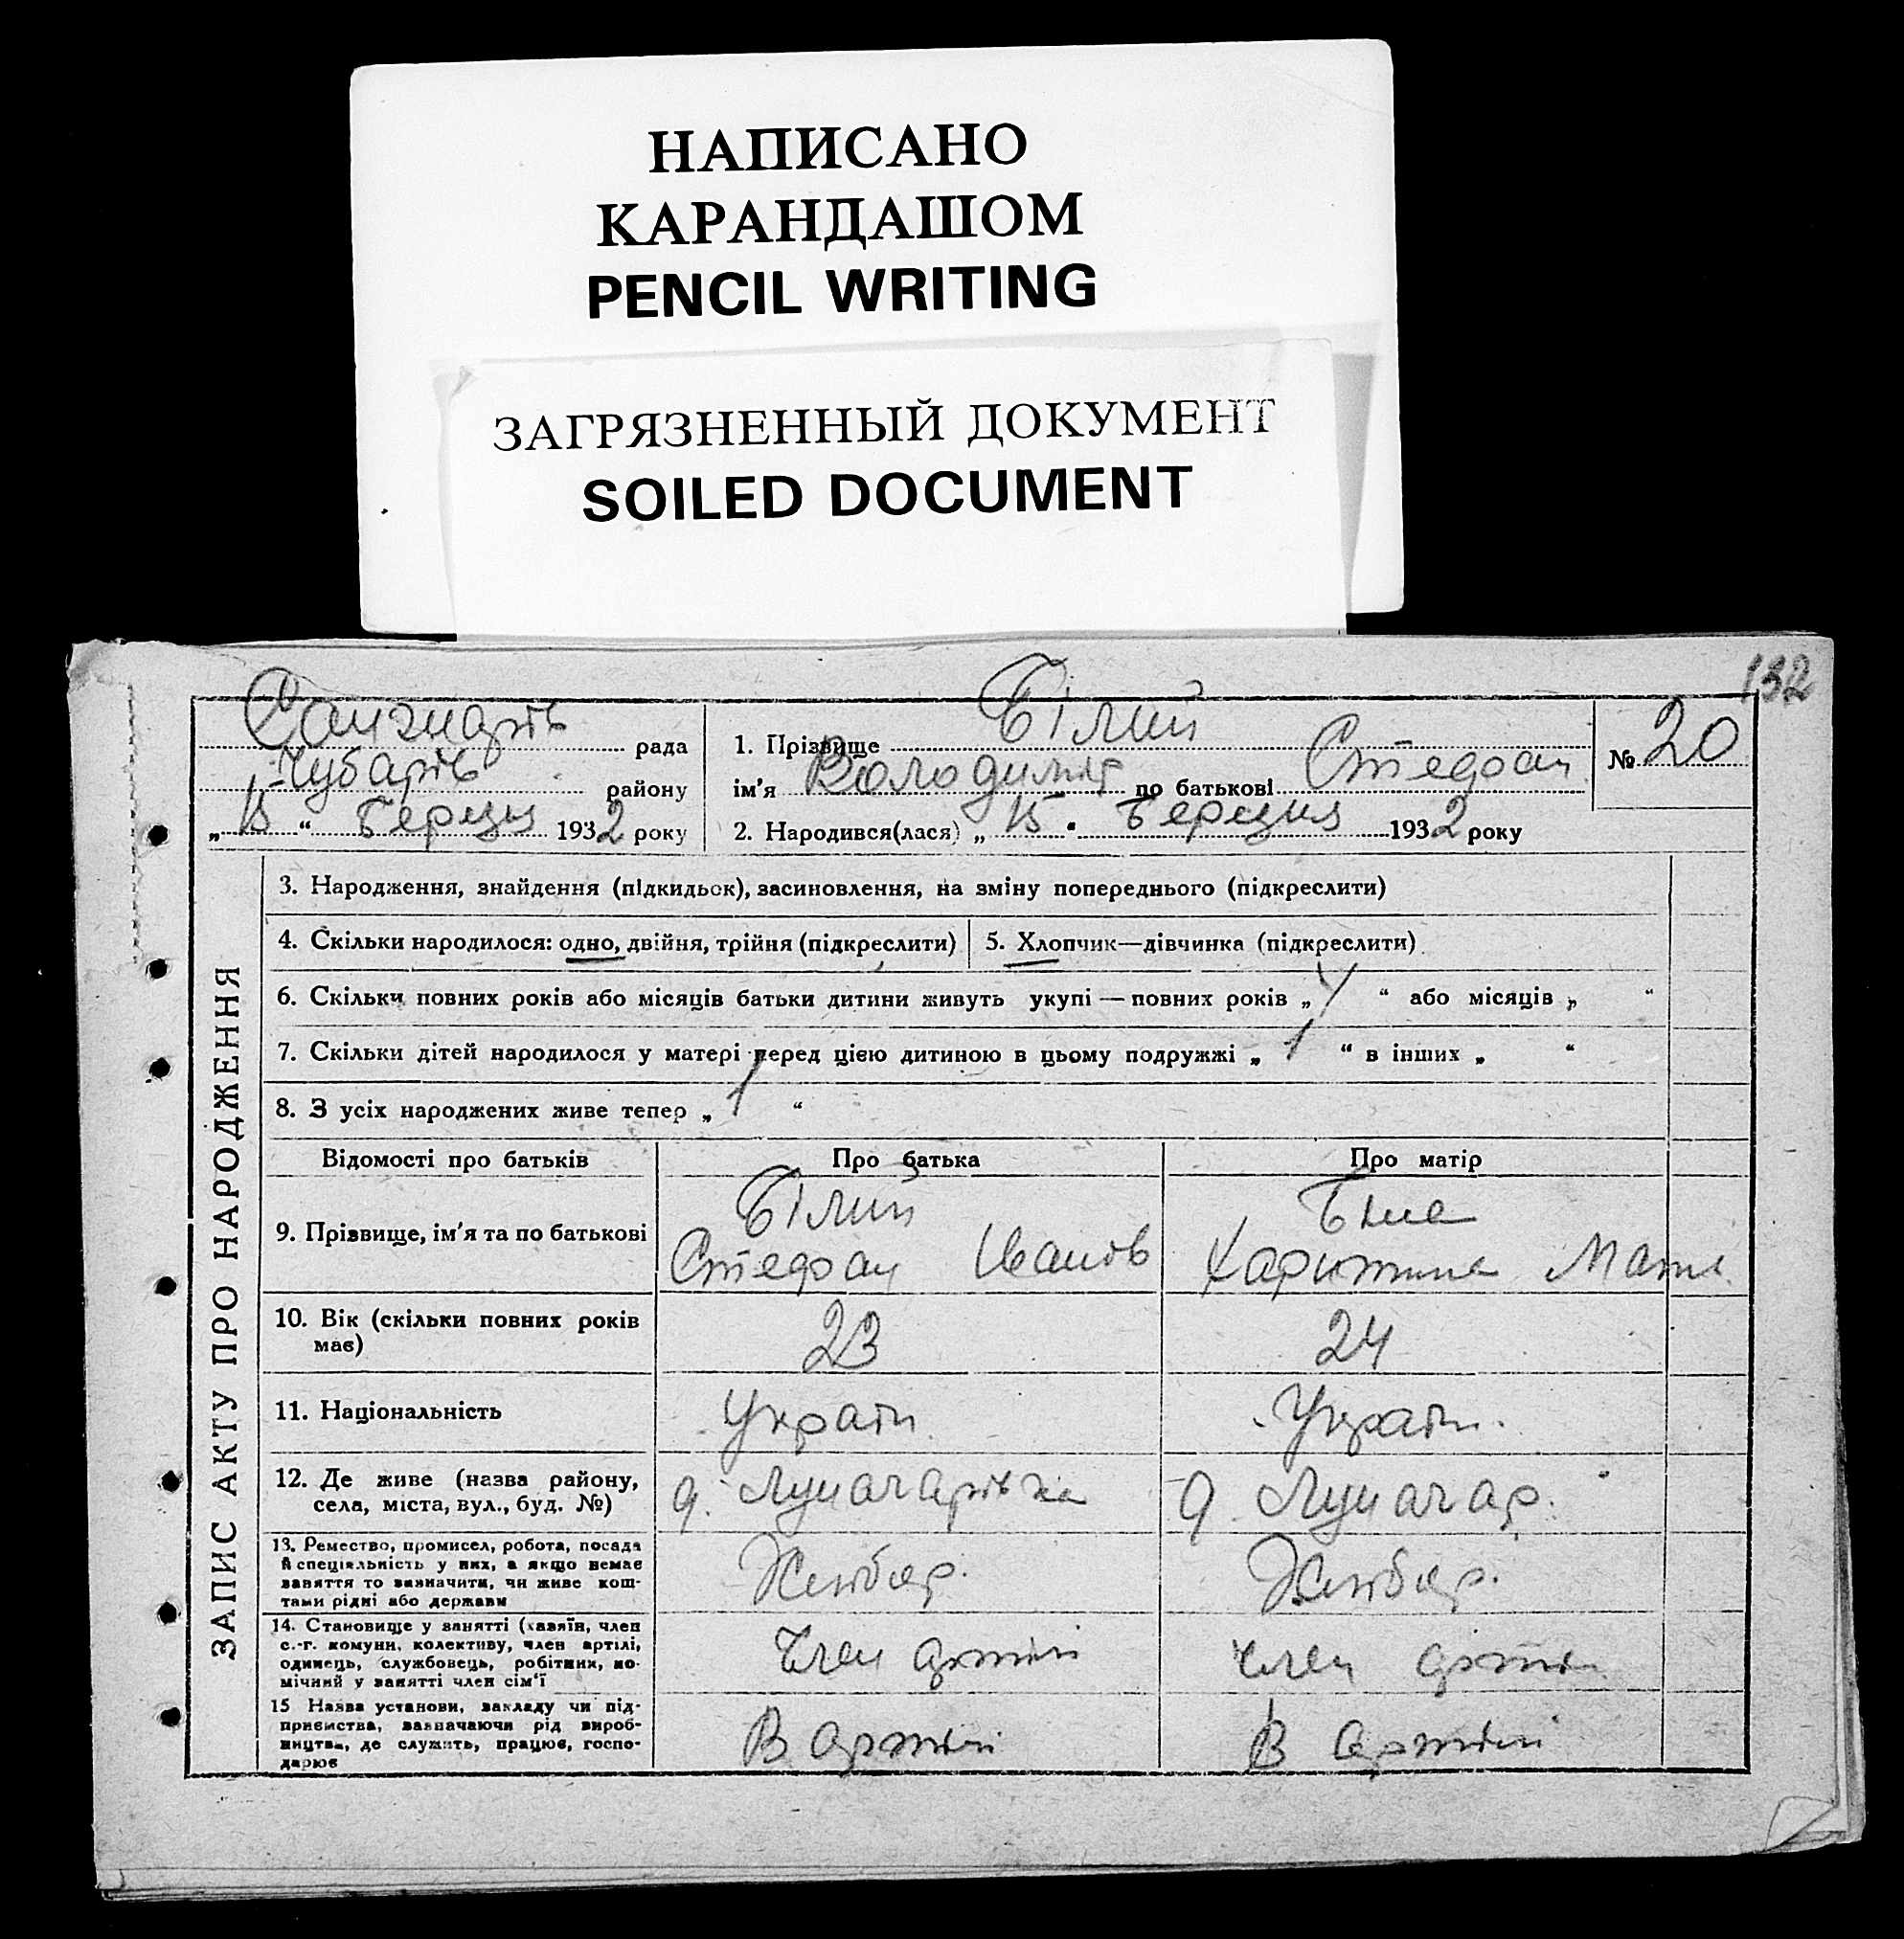 НАПИСАНО
КАРАНДАШОМ
PENCIL WRITING
ЗАГРЯЗНЕННЫЙ ДОКУМЕНТ
SOILED DOCUMENT
132
рада
Чубарів району
„ 15 “ Березня 1932 року
1. Прізвище Білий
ім'я Володимир по батькові Стефан
№ 20
2. Народився(лася) „ 15 “ Березня 1932 року
ЗАПИС АКТУ ПРО НАРОДЖЕННЯ
3. Народження, знайдення (підкидьок), засиновлення, на зміну попереднього (підкреслити)
4. Скільки народилося: одно, двійня, трійня (підкреслити) 5. Хлопчик—дівчинка (підкреслити)
6. Скільки повних років або місяців батьки дитини живуть укупі — повних років „ 4 “ або місяців „ “
7. Скільки дітей народилося у матері перед цією дитиною в цьому подружжі „ 1 “ в інших „ “
8. З усіх народжених живе тепер „ 1 “
Відомості про батьків Про батька Про матір
9. Прізвище, ім'я та по батькові
Білий
Стефан Іванів
Біла
10. Вік (скільки повних років
має)
23
24
11. Національність
Україн
Україн.
12. Де живе (назва району,
села, міста, вул., буд. №)
Луначарівка
Луначар.
13. Ремество, промисел, робота, посада
й спеціяльність у них, а якщо немає
заняття то зазначити, чи живе кош-
тами рідні або держави
Хлібор.
Хлібор.
14. Становище у занятті (хазяїн, член
с.-г. комуни, колективу, член артілі,
одинець, службовець, робітник, по-
мічний у занятті член сім'ї
Член артілі
Член артіл
15 Назва установи, закладу чи під-
приємства, зазначаючи рід вироб-
ництва, де служить, працює, госпо-
дарює
В артілі
В артілі